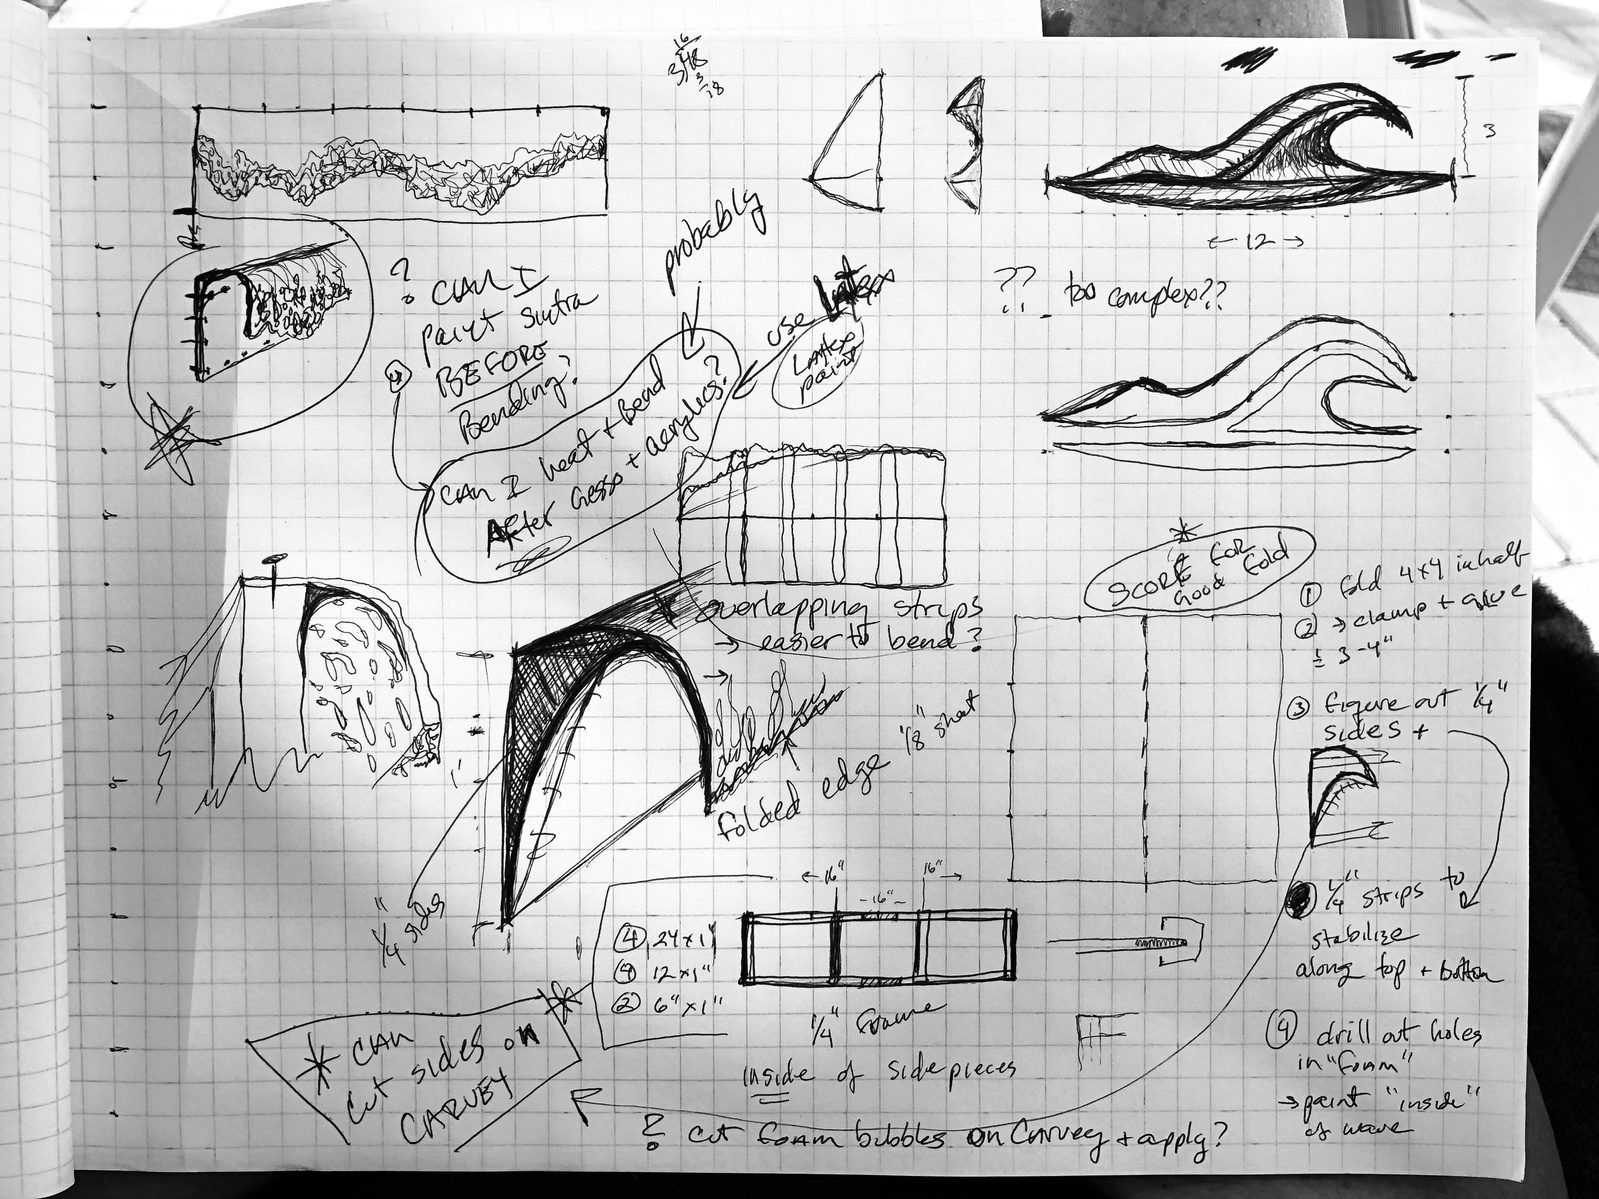 16
3)48
3
18
3
← 12 →
?? too complex??
probably
? CAN I
paint sintra
BEFORE
Bending?
use latex
Latex
paint
CAN I heat + Bend
AFter Gesso + acrylics?
overlapping strips
→ easier to bend?
* SCORE FOR
Good fold
① fold 4x4 in half
② → clamp + glue
3-4"
③ figure out 1/4"
sides +
1/4" strips to
stabilize
along top + bottom
④ drill out holes
in "foam"
→ paint "inside"
of wave
1'
1/4" sides
folded edge 1/8" sheet
← 16" 16" →
-16"-
④ 24 x 1"
④ 12 x 1"
② 6" x 1"
1/4" frame
inside of side pieces
* CAN
Cut sides on
CARVEY
? cut foam bubbles on Carvey + apply?